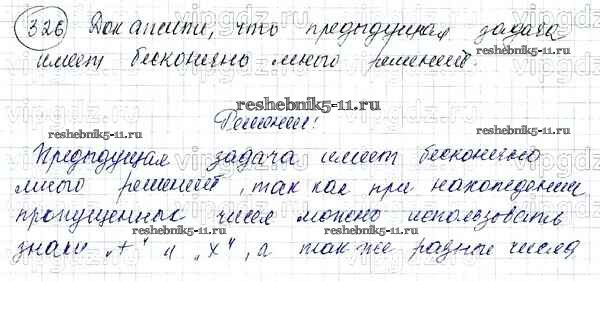 326 Докажите, что предыдущая задача
имеет бесконечно много решений.
reshebnik5-11.ru
reshebnik5-11.ru
reshebnik5-11.ru
Решение!
Предыдущая задача имеет бесконечно
много решений, так как при нахождении
пропущенных чисел можно использовать
знаки „+“ и „×“, а так же разные числа
reshebnik5-11.ru
reshebnik5-11.ru